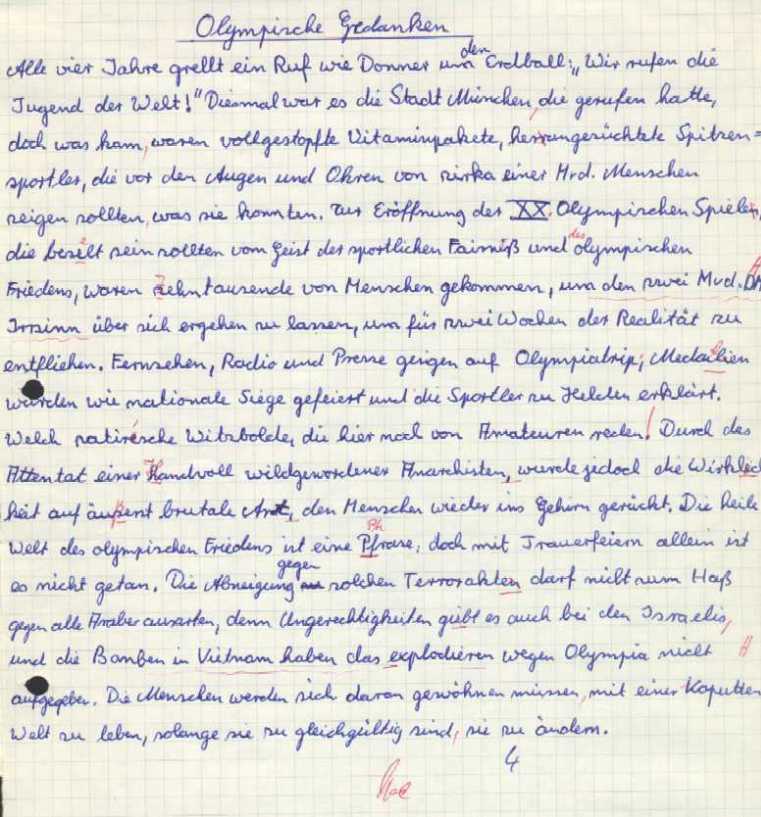 Olympische Gedanken
Alle vier Jahre grellt ein Ruf wie Donner um den Erdball: „Wir rufen die
Jugend der Welt!" Diesmal war es die Stadt München, die gerufen hatte,
doch was kam, waren vollgestopfte Vitaminpakete, herangezüchtete Spitzen=
sportler, die vor den Augen und Ohren von zirka einer Mrd. Menschen
zeigen sollten, was sie konnten. Zur Eröffnung der XX. Olympischen Spiele,
die beselt sein sollten vom Geist der sportlichen Fairniß und des olympischen
Friedens, waren zehntausende von Menschen gekommen, um den zwei Mrd. DM A
Irrsinn über sich ergehen zu lassen, um für zwei Wochen der Realität zu
entfliehen. Fernsehen, Radio und Presse gingen auf Olympiatrip; Medailien
wurden wie nationale Siege gefeiert und die Sportler zu Helden erklärt.
Welch satirische Witzbolde, die hier noch von Amateuren reden! Durch das
Attentat einer Handvoll wildgewordener Anarchisten, wurde jedoch die Wirklich
keit auf äußerst brutale Art, den Menschen wieder ins Gehirn gerückt. Die heile
Welt des olympischen Friedens ist eine Pfrase, doch mit Trauerfeiern allein ist
Ph
es nicht getan. Die Abneigung gegen solchen Terrorakten darf nicht zum Haß
gegen alle Araber ausarten, denn Ungerechtigkeiten giebt es auch bei den Israelis,
und die Bomben in Vietnam haben das explodieren wegen Olympia nicht A
aufgegeben. Die Menschen werden sich daran gewöhnen müssen, mit einer Kaputten
Welt zu leben, solange sie zu gleichgültig sind, sie zu ändern.
4